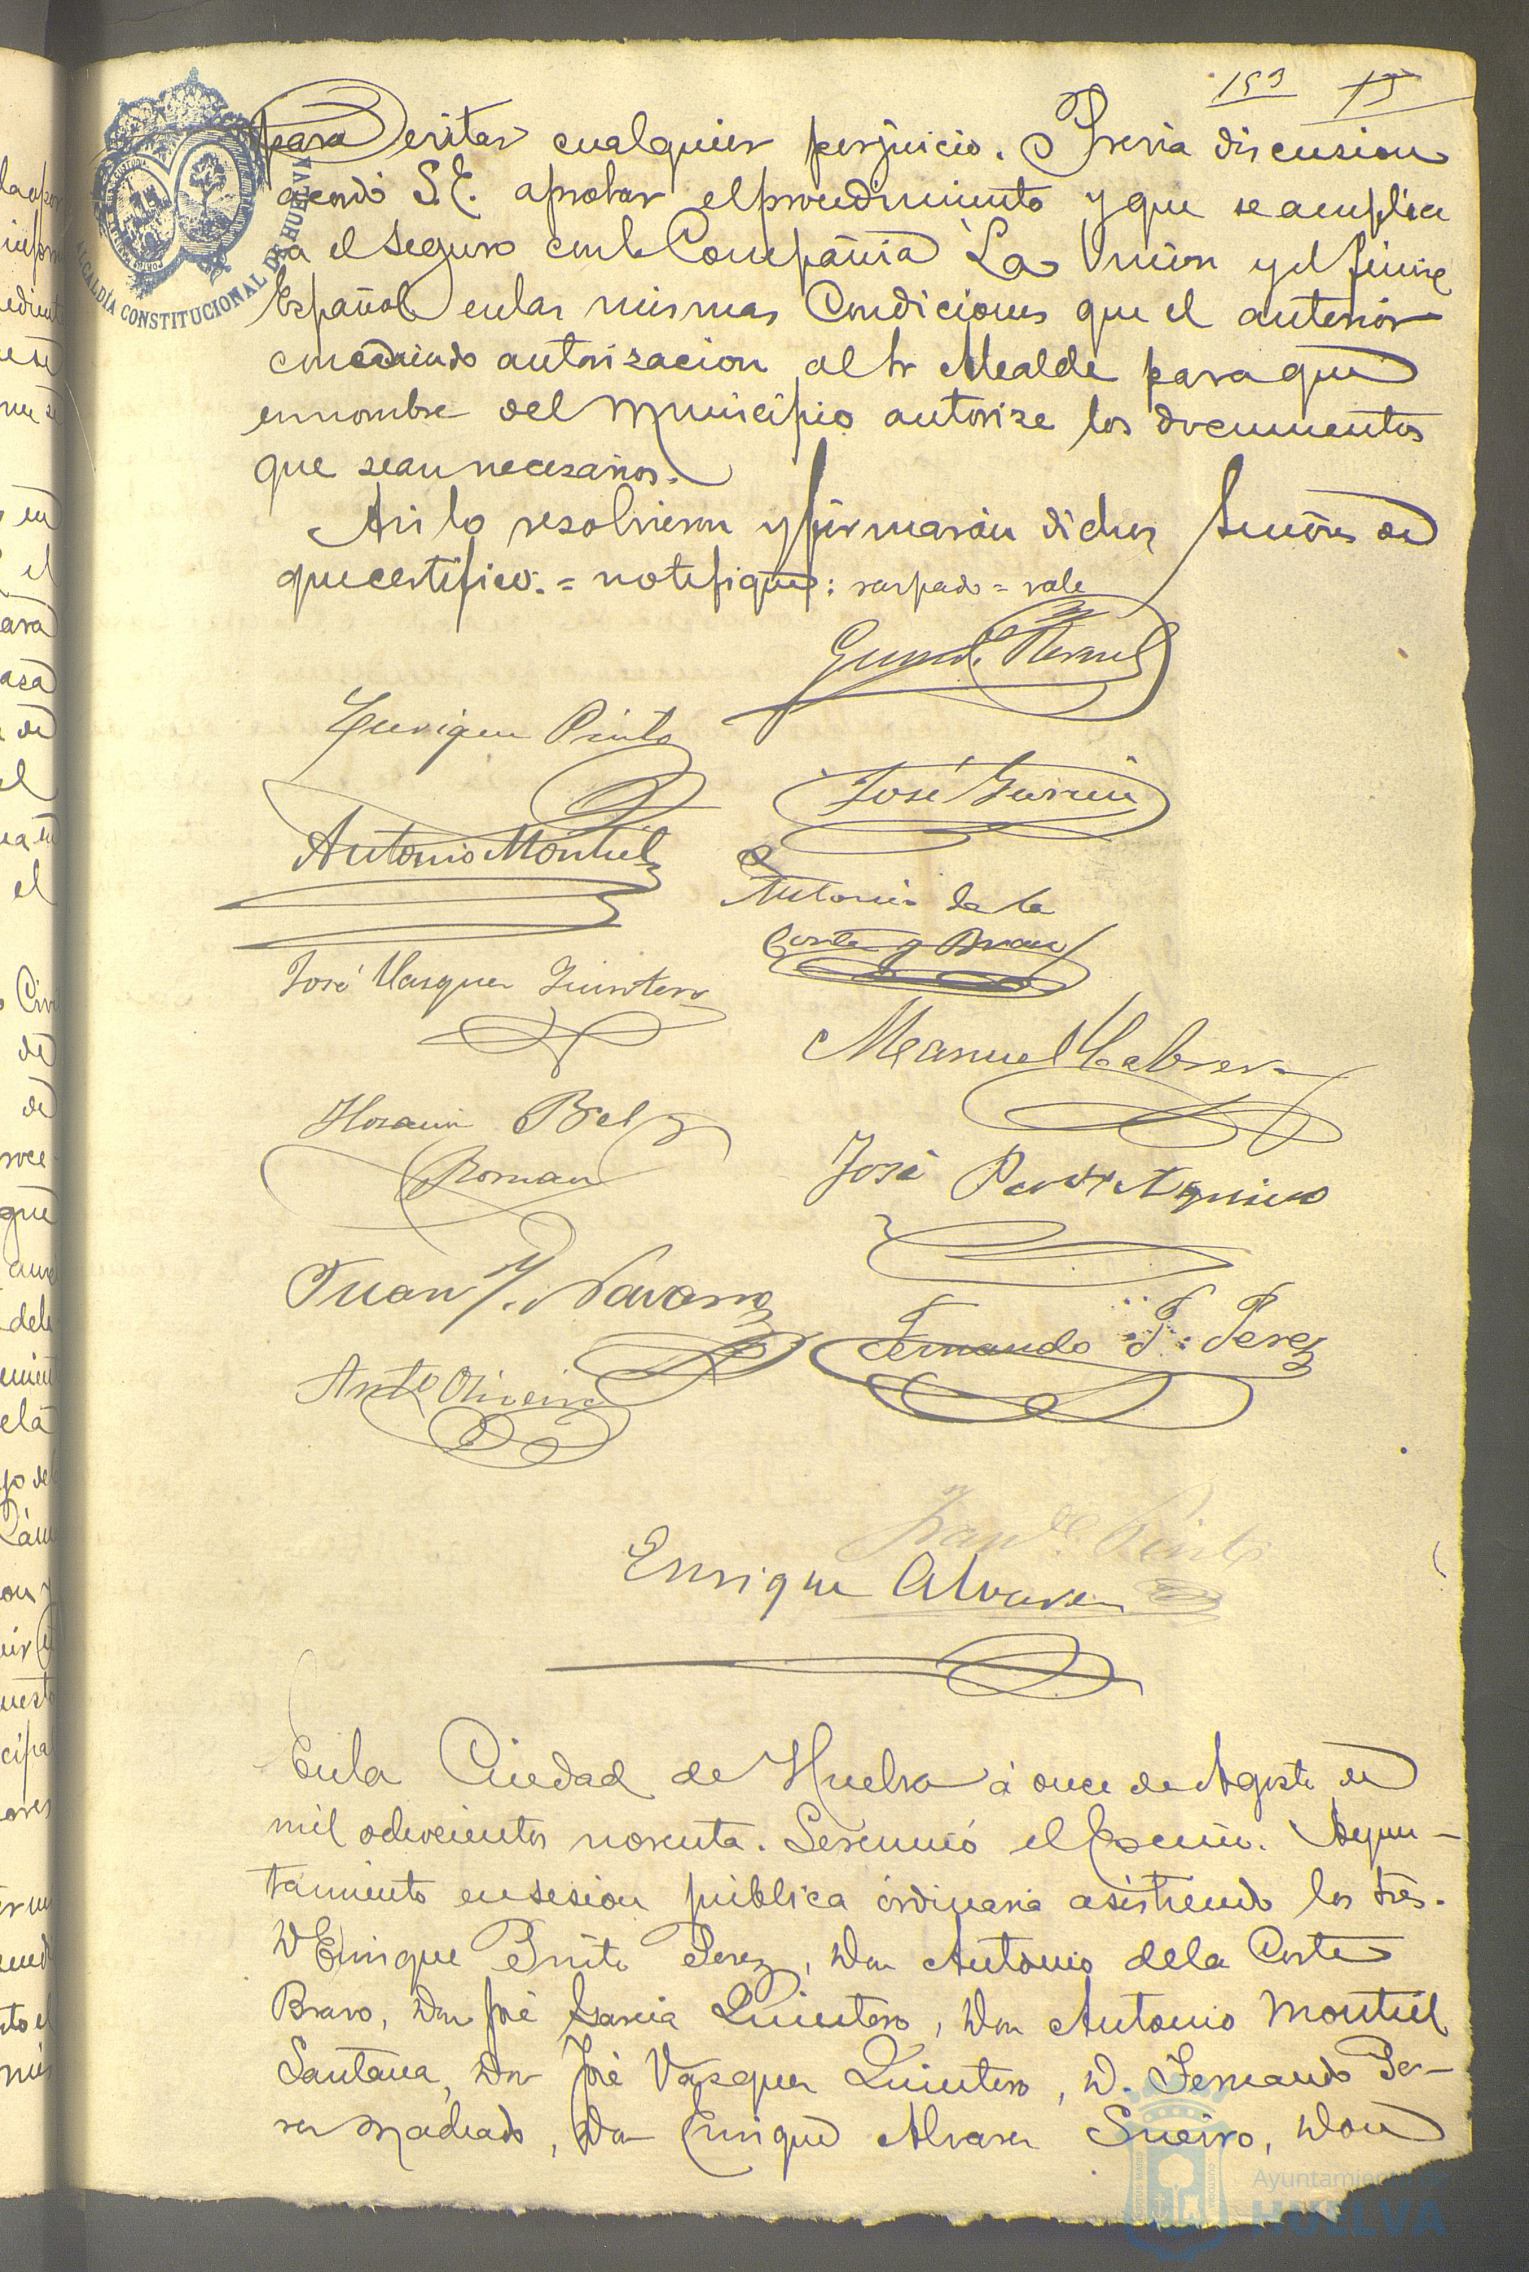 153 15
para evitar cualquier perjuicio. Previa discusion
acordó S.E. aprobar el procedimiento y que se amplie
a el seguro con la Compañia La Union y el Fenix
Español en las mismas Condiciones que el anterior
concediendo autorizacion al Sr Alcalde para que
en nombre del Municipio autorize los documentos
que sean necesarios.
Asi lo resolvieron y firmarán dichos Señores de
que certifico. = notifique: raspado = vale
Enrique Pinto
José Garcia
Antonio Montiel
Antonio de la
Corte y Bravo
José Vasquez Quintero
Manuel Cabrera
Horacio Bel
Roman
José
Juan J. Navarro
Fernando P. Perez
Antº Oliveira
Franco Pinto
Enrique Alvarez
En la Ciudad de Huelva á once de Agosto de
mil ochocientos noventa. Se reunió el Excmo. Ayun-
tamiento en sesion pública ordinaria asistiendo los Sres.
D Enrique Pinto Perez, Don Antonio de la Corte
Bravo, Don José Garcia Quintero, Don Antonio Montiel
Santana, Don José Vasquez Quintero, D. Fernando Pe-
rez Machado, Don Enrique Alvarez Sueiro, Don
ALCALDÍA CONSTITUCIONAL DE HUELVA
Ayuntamiento de
HUELVA